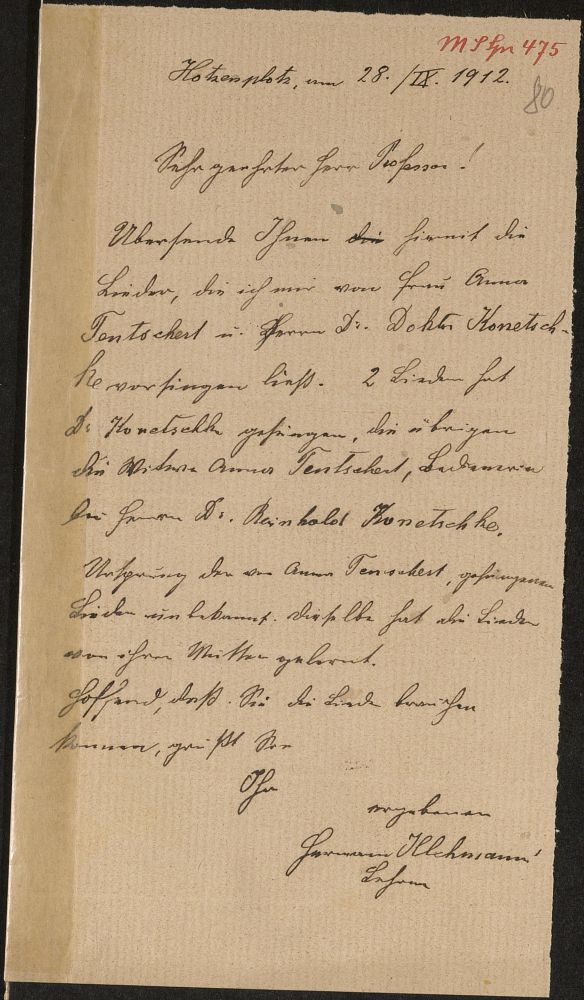 MS Gn 475
80
Hotzenplotz, am 28./IX. 1912.
Sehr geehrter Herr Professor!
Übersende Ihnen die hiemit die
Lieder, die ich mir von Frau Anna
Tentschert u. Herrn Dr. Doktor Konetsch-
ke vorsingen ließ. 2 Lieder hat
Dr Konetschke gesungen, die übrigen
die Witwe Anna Tentschert, Bedienerin
bei Herrn Dr. Reinhold Konetschke.
Ursprung der von Anna Tenschert, gesungenen
Lieder unbekannt. Dieselbe hat die Lieder
von ihrer Mutter gelernt.
Hoffend, daß Sie die Lieder brauchen
können, grüßt Sie
Ihr
ergebener
Hermann
Lehrer